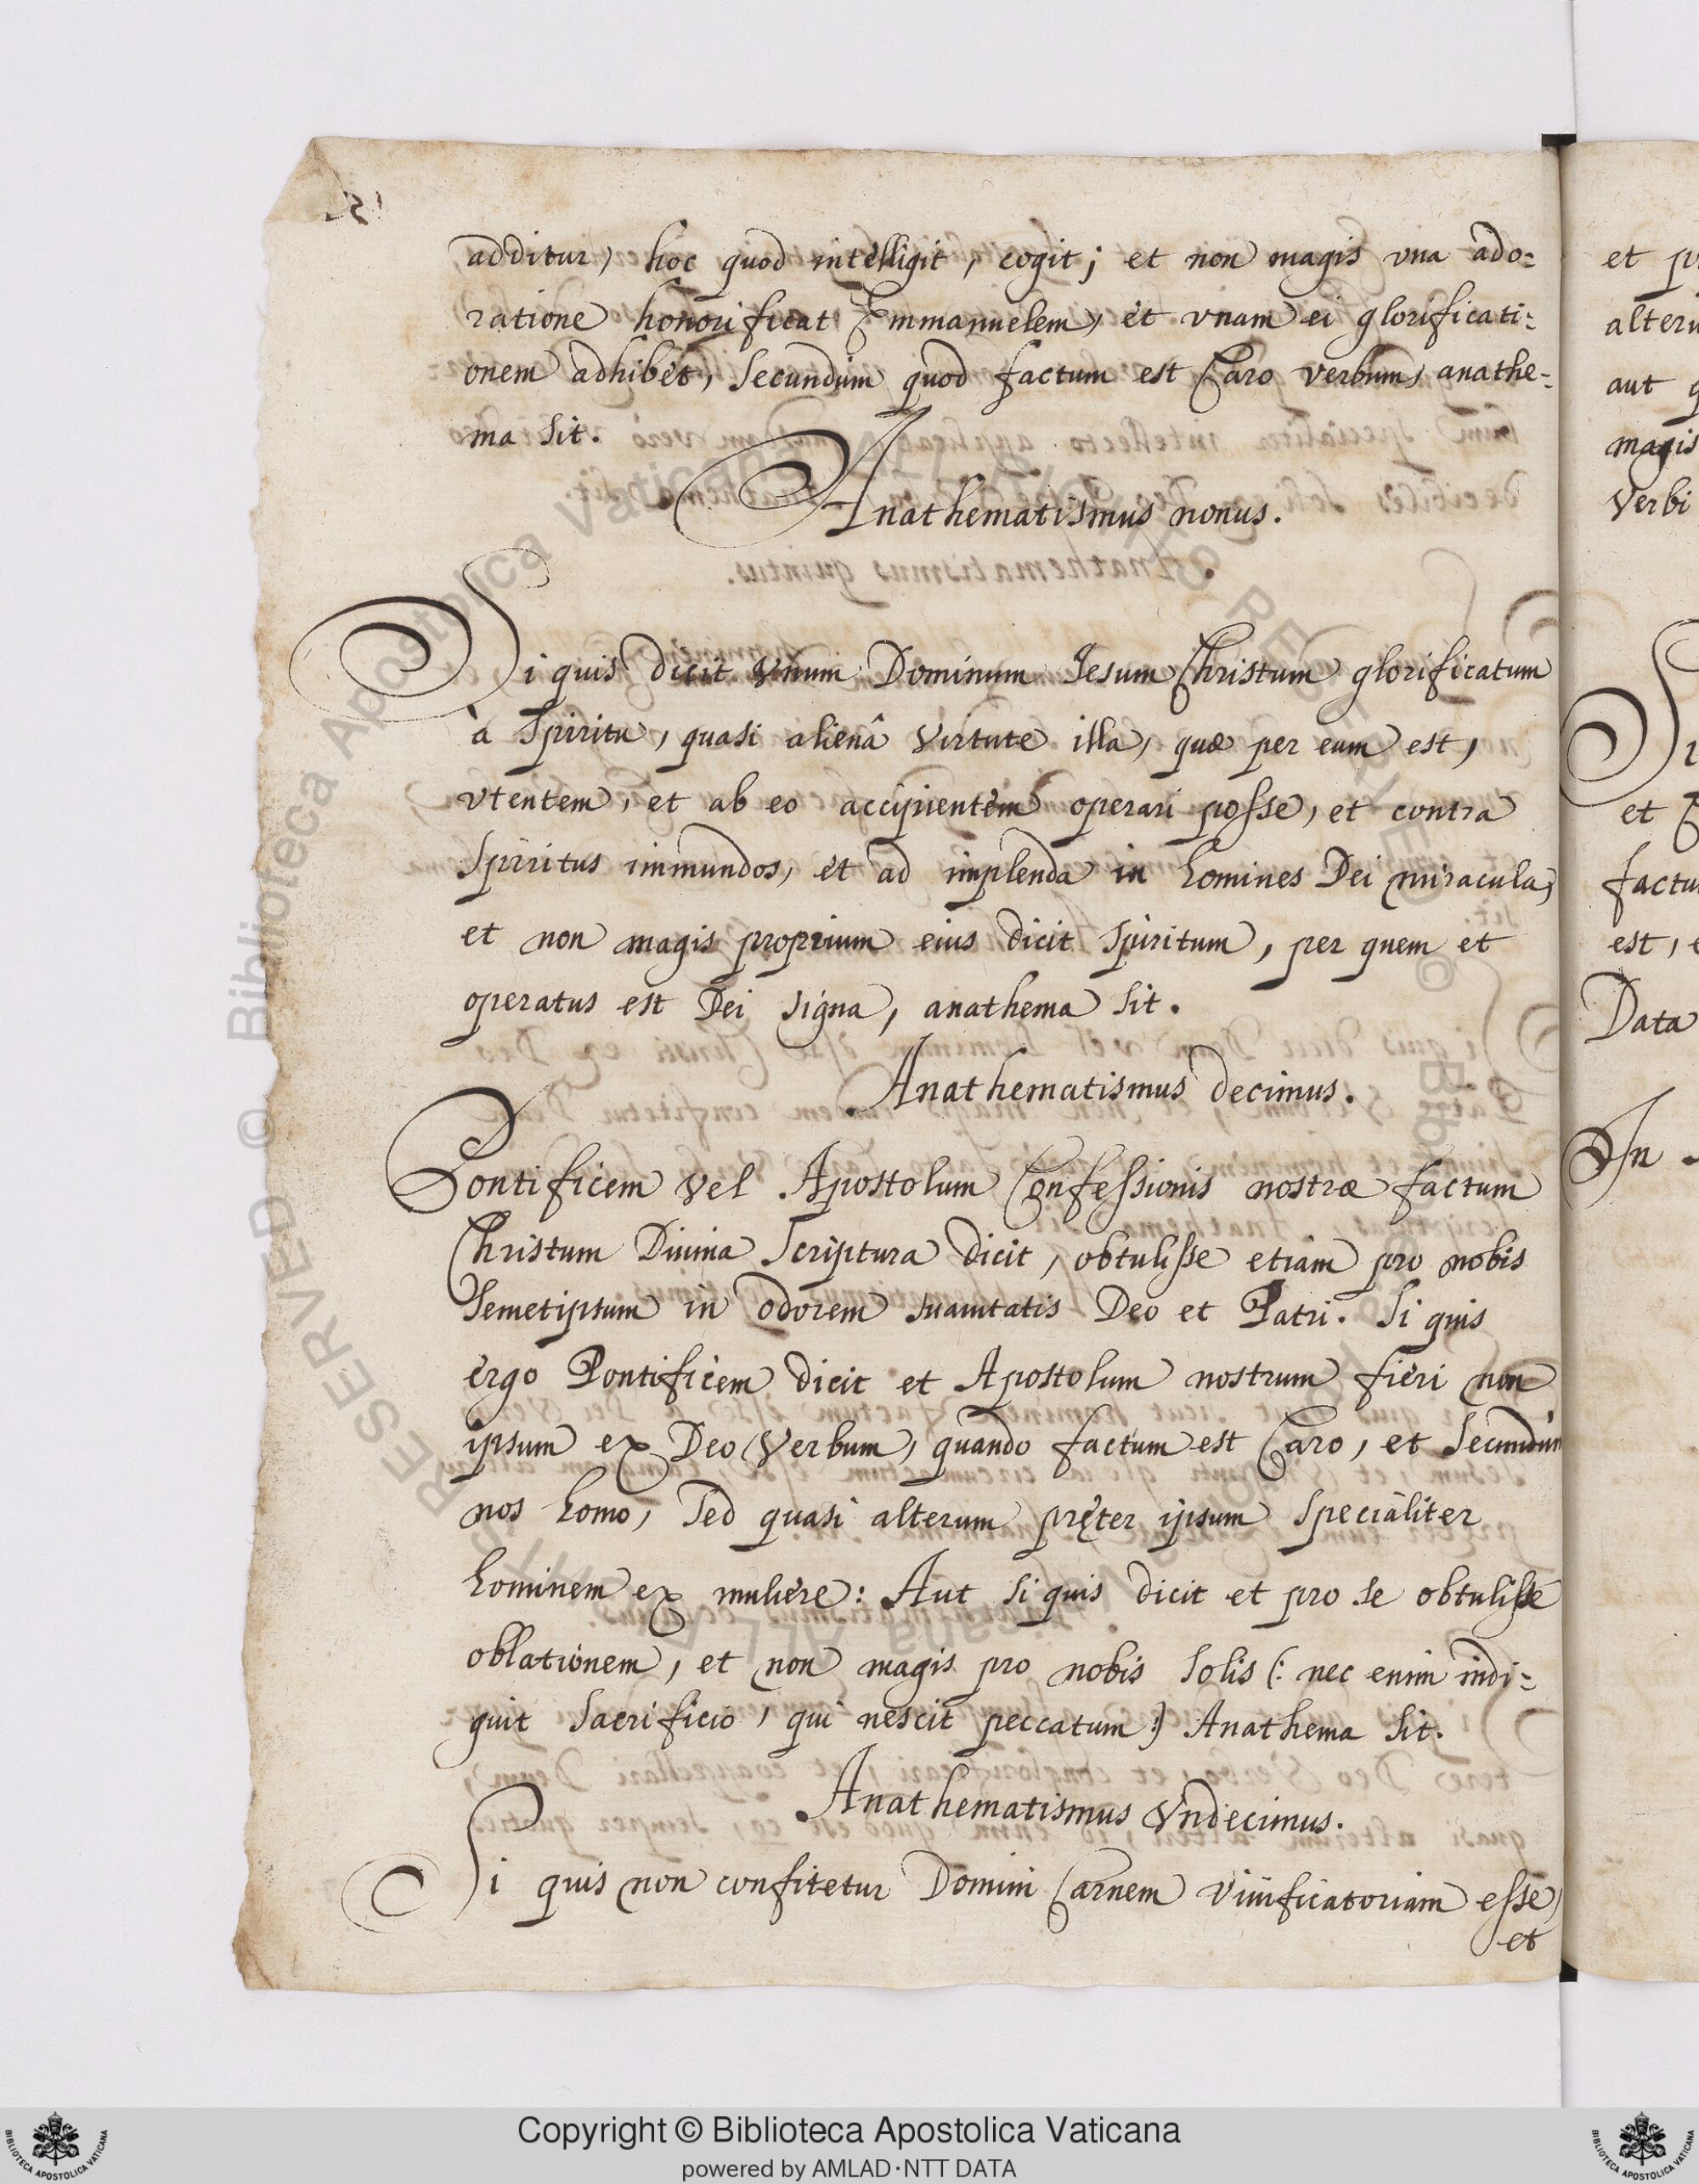 additur, hoc quod intelligit, cogit; et non magis vna ado:
ratione honorificat Emmanuelem, et vnam ei glorificati:
onem adhibet, secundum quod factum est Caro verbum, anathe:
ma sit.
Anathematismus nonus.
Si quis dicit vnum Dominum Iesum Christum glorificatum
à Spiritu, quasi alienâ virtute illa, quæ per eum est,
vtentem, et ab eo accipientem operari posse, et contra
Spiritus immundos, et ad implenda in homines Dei miracula,
et non magis proprium eius dicit Spiritum, per quem et
operatus est Dei signa, anathema sit.
Anathematismus decimus.
Pontificem vel Apostolum Confessionis nostræ factum
Christum Diuina Scriptura dicit, obtulisse etiam pro nobis
Semetipsum in odorem suauitatis Deo et Patri. Si quis
ergo Pontificem dicit et Apostolum nostrum fieri non
ipsum ex Deo Verbum, quando factum est Caro, et secundum
nos homo, sed quasi alterum pręter ipsum specialiter
hominem ex muliere: Aut si quis dicit et pro se obtulisse
oblationem, et non magis pro nobis solis (: nec enim indi:
guit sacrificio, qui nescit peccatum :) Anathema sit.
Anathematismus Vndecimus.
Si quis non confitetur Domini Carnem viuificatoriam esse,
et
et
alteru
aut
magis
Verbi
et
factu
est,
Data
In
© Biblioteca Apostolica Vaticana
RESERVED
Copyright © Biblioteca Apostolica Vaticana
powered by AMLAD·NTT DATA
BIBLIOTECA APOSTOLICA VATICANA
BIBLIOTECA APOSTOLICA VATICANA